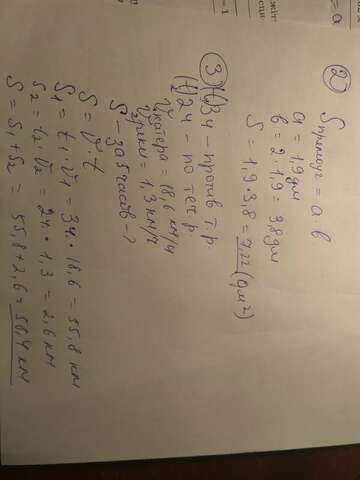 2) Sпрямоуг = a b
a = 1,9 дм
b = 2 · 1,9 = 3,8 дм
S = 1,9 · 3,8 = 7,22 (дм²)
3) t₁ 3ч – против т.р.
t₂ 2ч – по теч. р.
Vкатера = 18,6 км/ч
V реки = 1,3 км/ч
S – за 5 часов – ?
S = V · t
S₁ = t₁ · V₁ = 3ч · 18,6 = 55,8 км
S₂ = t₂ · V₂ = 2ч · 1,3 = 2,6 км
S = S₁ + S₂ = 55,8 + 2,6 = 58,4 км